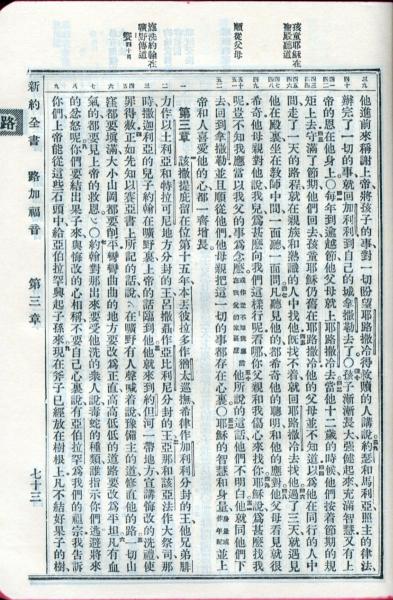 孩童耶穌在聖殿聽道
順從父母
施洗約翰在曠野傳道
賽四十
他進前來稱謝上帝將孩子的事對一切盼望耶路撒冷得救贖的人講說約瑟和馬利亞照主的律法
辦完了一切的事就回加利利到自己的城拿撒勒去了○孩子漸漸長大強健起來充滿智慧又有上
帝的恩在他身上○每年到逾越節他父母就上耶路撒冷去當他十二歲的時候他們按着節期的規
矩上去守滿了節期他們回去孩童耶穌仍舊在耶路撒冷他的父母並不知道以爲他在同行的人中
間走了一天的路程就在親族和熟識的人中找他旣找不着就回耶路撒冷去找他過了三天就遇見
他在殿裏坐在教師中間一面聽一面問凡聽見他的都希奇他的聰明和他的應對他父母看見就很
希奇他母親對他說我兒爲甚麼向我們這樣行呢看哪你父親和我傷心來找你耶穌說爲甚麼找我
呢豈不知我應當以我父的事爲念麼或作豈不知我應當在我父的家裏麼他所說的這話他們不明白他就同他們下
去回到拿撒勒並且順從他們他母親把這一切的事都存在心裏○耶穌的智慧和身量身量或作年紀並上
帝和人喜愛他的心都一齊增長
第三章 該撒提庇留在位第十五年本丟彼拉多作猶太巡撫希律作加利利分封的王他兄弟腓
力作以土利亞和特拉可尼地方分封的王呂撒聶作亞比利尼分封的王亞那和該亞法作大祭司那
時撒迦利亞的兒子約翰在曠野裏上帝的話臨到他他就來到約但河一帶地方宣講悔改的洗禮使
罪得赦正如先知以賽亞書上所記的話說在曠野有人聲喊着說豫備主的道修直他的路一切山
窪都要填滿大小山岡都要削平彎彎曲曲的地方要改爲正直高高低低的道路要改爲平坦凡有血
氣的都要見上帝的救恩○約翰對那出來要受他洗的衆人說毒蛇的種類誰指示你們逃避將來
的忿怒呢你們要結出果子來與悔改的心相稱不要自己心裏說有亞伯拉罕爲我們的祖宗我告訴
你們上帝能從這些石頭中給亞伯拉罕興起子孫來現在斧子已經放在樹根上凡不結好果子的樹
新約全書 路加福音 第三章 七十三
路